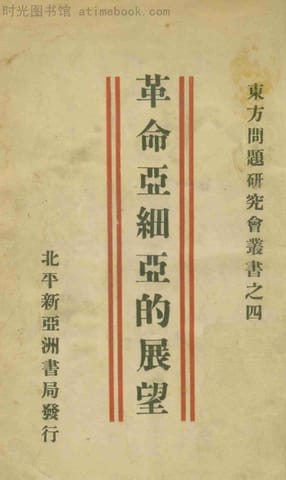 时光图书馆 - atimebook.com
東方問題研究會叢書之四
革命亞細亞的展望
北平新亞洲書局發行